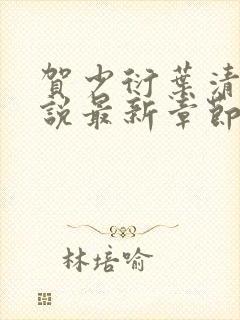 賀少衍葉清
說最新章節
林培喻